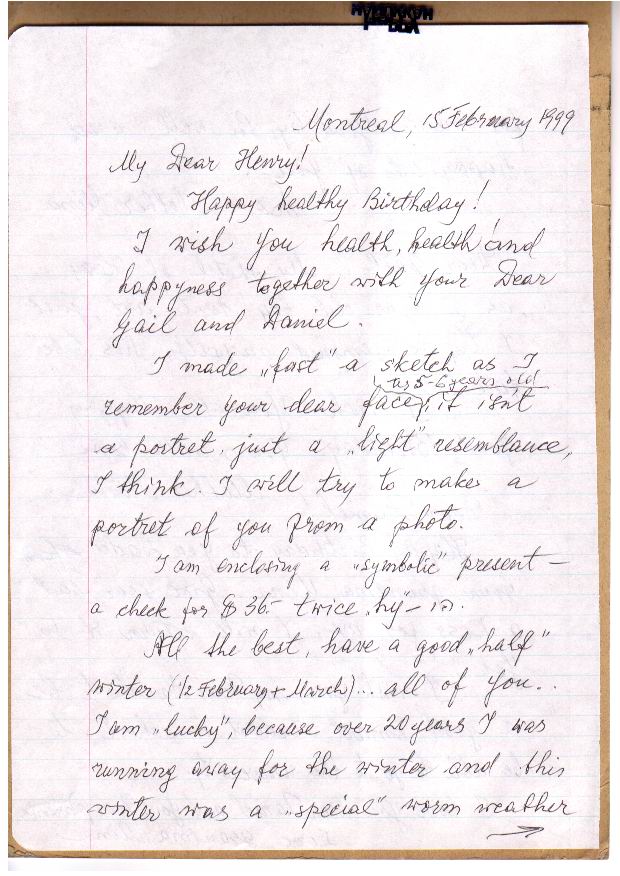 Montreal, 15 February 1999
My Dear Henry!
Happy healthy Birthday!
I wish you health, health and
happyness together with your Dear
Gail and Daniel.
I made „fast" a sketch as I
(as 5-6 years old
remember your dear face, it isn't
a postret, just a „light" resemblance,
I think. I will try to make a
portret of you from a photo.
I am enclosing a „symbolic" present –
a check for $ 36.- twice „hy" –
All the best, have a good „half"
winter (1/2 February + March)... all of you..
I am „lucky", because over 20 years I was
running away for the winter and this
winter was a „special" worm weather